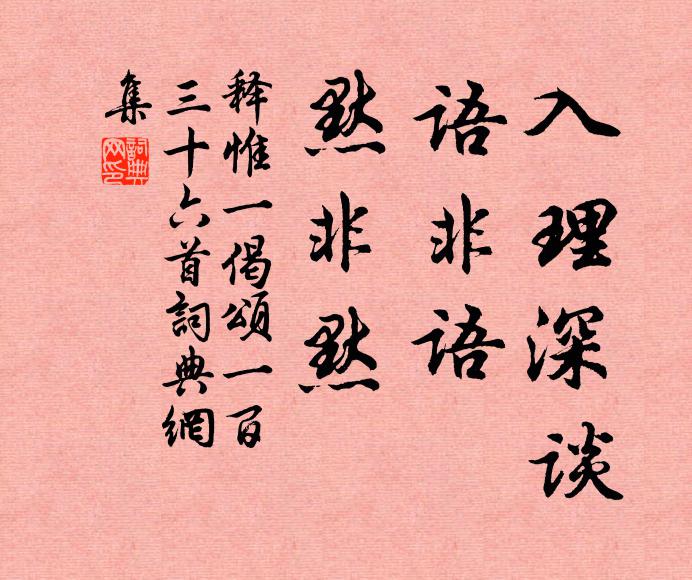 入理深谈
语非语
默非默
释惟一偈颂一百
三十六首詞典網
集
詞典
网印